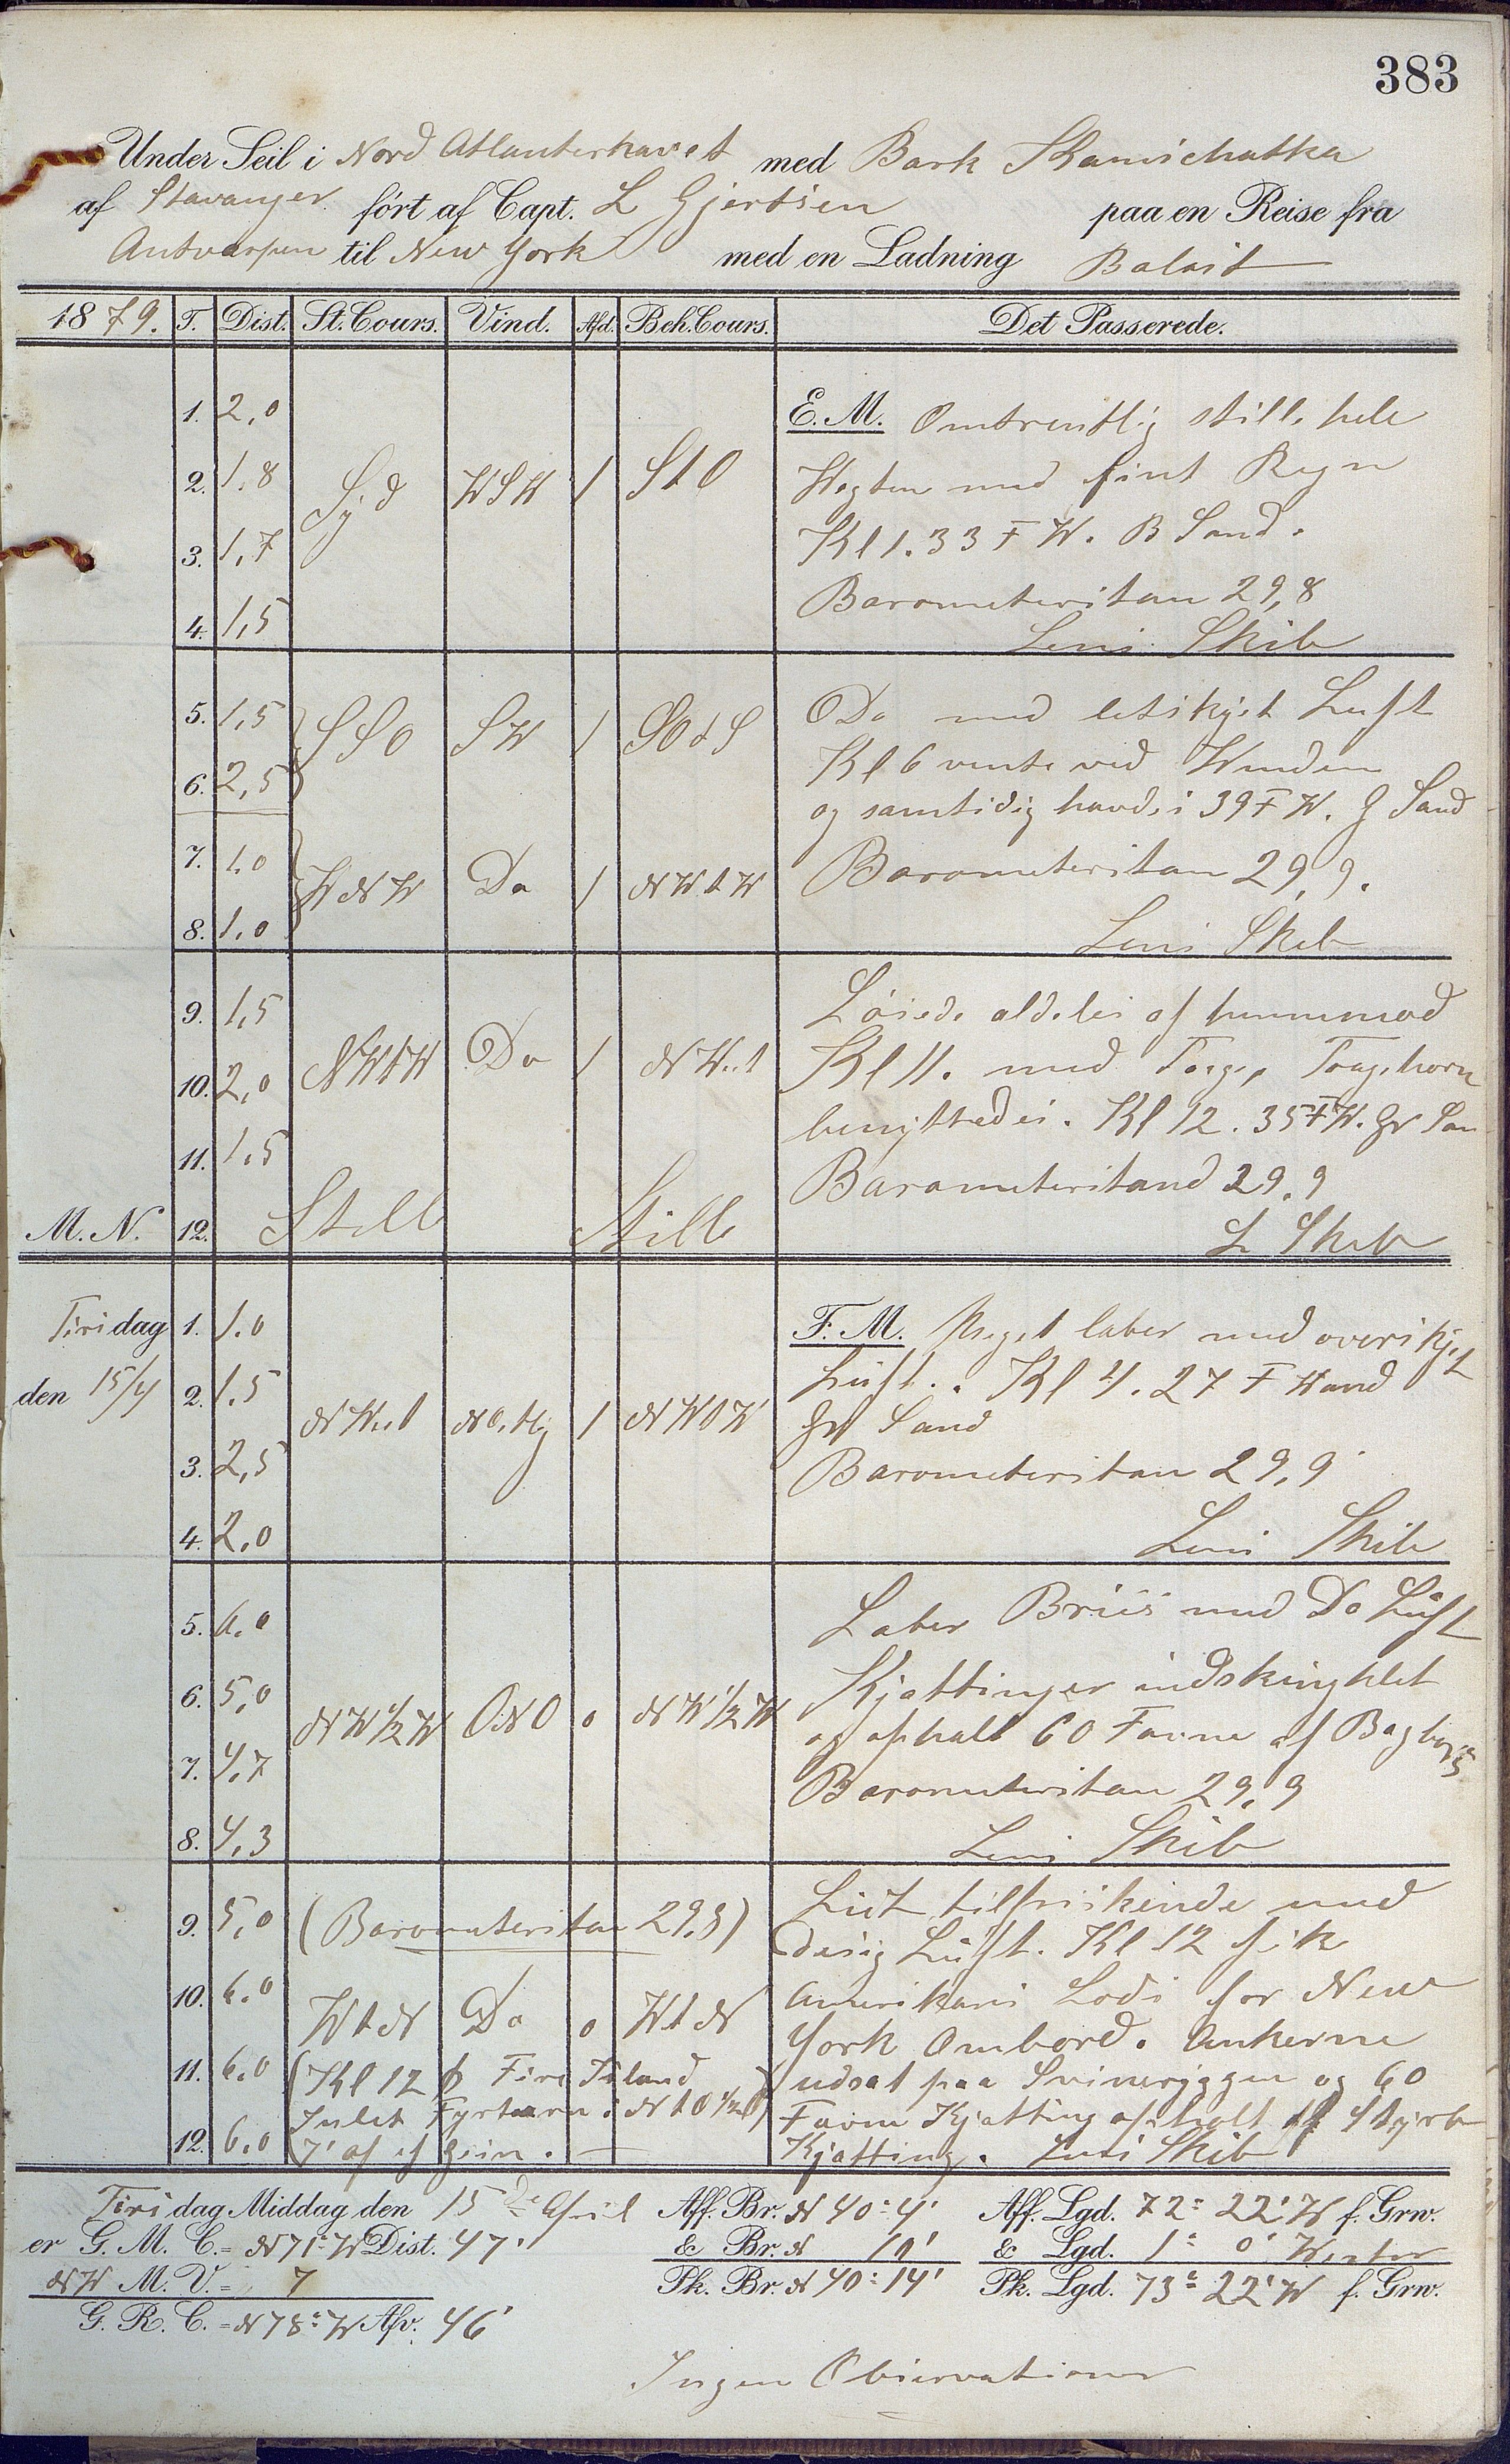 383
Under Seil i Nord Atlanterhavet med Bark Kamschatka
af Stavanger ført af Capt. L Gjertsen paa en Reise fra
Antverpen til New York med en Ladning Balast
1879. T. Dist. St. Cours. Vind. Afd. Beh. Cours. Det Passerede.
1. 2,0 E. M. Omtrentlig stille hele
2. 1.8 Syd WSW 1 StO Wagten med fint Regn
3. 1,7 Kl 1. 33 F W. B Sand.
4. 1,5 Barometerstan 29,8
Lens Skib
5. 1,5 SSO SW 1 SOtS Do med letskyet Luft
6. 2,5 Kl 6 vente ved Winden
og samtidig havde i 39 F W. G Sand
7. 1.0 WNW Do 1 NWtW Barometerstan 29,9.
8. 1.0 Lens Skib
9. 1,5 Løiede aldeles af henimod
10. 2,0 NWtW Do 1 NWest Kl 11. med Taage, Taagehorn
11. 1.5 benyttedes. Kl 12. 35 F W. Gr San
Barometerstand 29.9
M. N. 12. Stille Stille L Skib
Tirsdag 1. 1.0 F. M. Meget laber med overskyet
den 15/4 2. 1.5 Luft. Kl 4. 27 F Wand
NWest NOstlig 1 NWtW Gr Sand
3. 2,5 Barometerstan 29,9
4. 2.0 Lens Skib
5. 6.0 Laber Briis med Do Luft
6. 5,0 Kjættinger indskinklet
NW 1/2 W ONO 0 NW 1/2 W og ophalt 60 Favne af Bagbords
7. 4,7 Barometerstan 29,9
8. 4,3 Lens Skib
9. 5,0 (Barometerstan 29.8) Lidt tilfriskende med
disig Luft. Kl 12 fik
10. 6.0 WtN Do 0 WtN Amerikans Lods for New
York Ombord. Ankerne
11. 6.0 (Kl 12 Fire Island udsat paa Svineryggen og 60
Inlet Fyrtaarn i NtO 1/2 O Favne Kjætting ophalt af Styrb
12. 6.0 7' af Kjætting. Lens Skib
Tirsdag Middag den 15de April Aff. Br. N 40° 4' Aff. Lgd. 72° 22' W f. Grw.
er G. M. C. = N 71° W Dist. 47' & Br. N 10' & Lgd. 1° 0' Wester
NW M. V. = 7 Pk. Br. N 40° 14' Pk. Lgd. 73° 22' W f. Grw.
G. R. C. = N 78° W Afv. 46'
Ingen Observationer